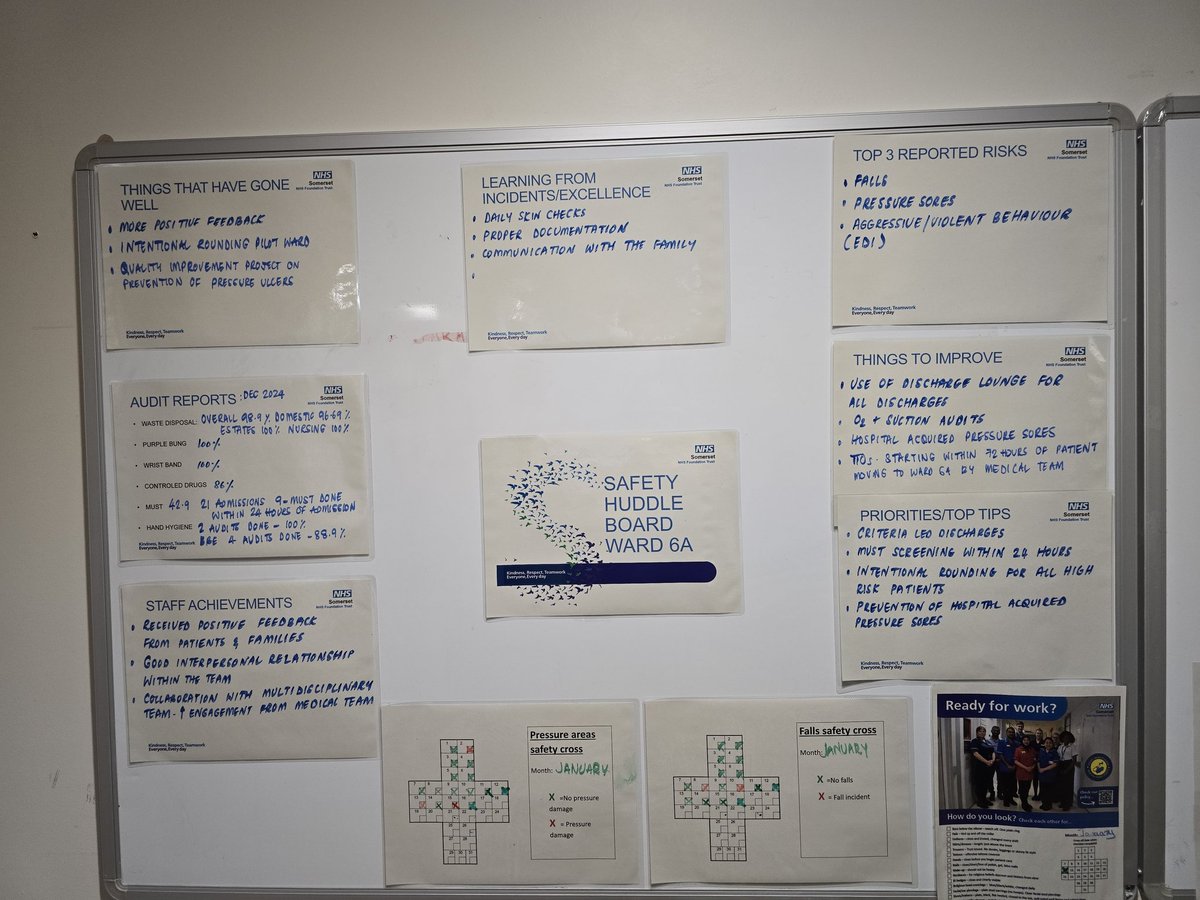 THINGS THAT HAVE GONE
WELL
NHS
Somerset
NHS Foundation Trust
• MORE POSITIVE FEEDBACK
• INTENTIONAL ROUNDING PILOT WARD
• QUALITY IMPROVEMENT PROJECT ON
PREVENTION OF PRESSURE ULCERS
Kindness, Respect, Teamwork
Everyone, Every day
LEARNING FROM
INCIDENTS/EXCELLENCE
NHS
Somerset
NHS Foundation Trust
• DAILY SKIN CHECKS
• PROPER DOCUMENTATION
• COMMUNICATION WITH THE FAMILY
•
Kindness, Respect, Teamwork
Everyone, Every day
TOP 3 REPORTED RISKS
NHS
Somerset
NHS Foundation Trust
• FALLS
• PRESSURE SORES
• AGGRESSIVE/VIOLENT BEHAVIOUR
(EDI)
Kindness, Respect, Teamwork
Everyone, Every day
AUDIT REPORTS : DEC 2024
NHS
Somerset
NHS Foundation Trust
• WASTE DISPOSAL: OVERALL 98.9% DOMESTIC 96.69%
ESTATES 100% NURSING 100%
• PURPLE BUNG 100%
• WRIST BAND 100%
• CONTROLED DRUGS 86%
• MUST 42.9 21 ADMISSIONS 9-MUST DONE
WITHIN 24 HOURS OF ADMISSION
• HAND HYGIENE 2 AUDITS DONE - 100%
BBE 4 AUDITS DONE - 88.9%
Kindness, Respect, Teamwork
Everyone, Every day
SAFETY
HUDDLE
BOARD
WARD 6A
NHS
Somerset
NHS Foundation Trust
Kindness, Respect, Teamwork
Everyone, Every day
THINGS TO IMPROVE
NHS
Somerset
NHS Foundation Trust
• USE OF DISCHARGE LOUNGE FOR
ALL DISCHARGES
• O2 + SUCTION AUDITS
• HOSPITAL ACQUIRED PRESSURE SORES
• TTOs - STARTING WITHIN 72 HOURS OF PATIENT
MOVING TO WARD 6A BY MEDICAL TEAM
PRIORITIES/TOP TIPS
NHS
Somerset
NHS Foundation Trust
• CRITERIA LED DISCHARGES
• MUST SCREENING WITHIN 24 HOURS
• INTENTIONAL ROUNDING FOR ALL HIGH
RISK PATIENTS
• PREVENTION OF HOSPITAL ACQUIRED
PRESSURE SORES
Kindness, Respect, Teamwork
Everyone, Every day
STAFF ACHIEVEMENTS
NHS
Somerset
NHS Foundation Trust
• RECEIVED POSITIVE FEEDBACK
FROM PATIENTS & FAMILIES
• GOOD INTERPERSONAL RELATIONSHIP
WITHIN THE TEAM
• COLLABORATION WITH MULTIDISCIPLINARY
TEAM - ↑ ENGAGEMENT FROM MEDICAL TEAM
Kindness, Respect, Teamwork
Everyone, Every day
Pressure areas
safety cross
Month: JANUARY
X =No pressure
damage
X = Pressure
damage
Falls safety cross
Month: JANUARY
X =No falls
X = Fall incident
Ready for work?
NHS
Somerset
How do you look? Check each other for...
Month: January